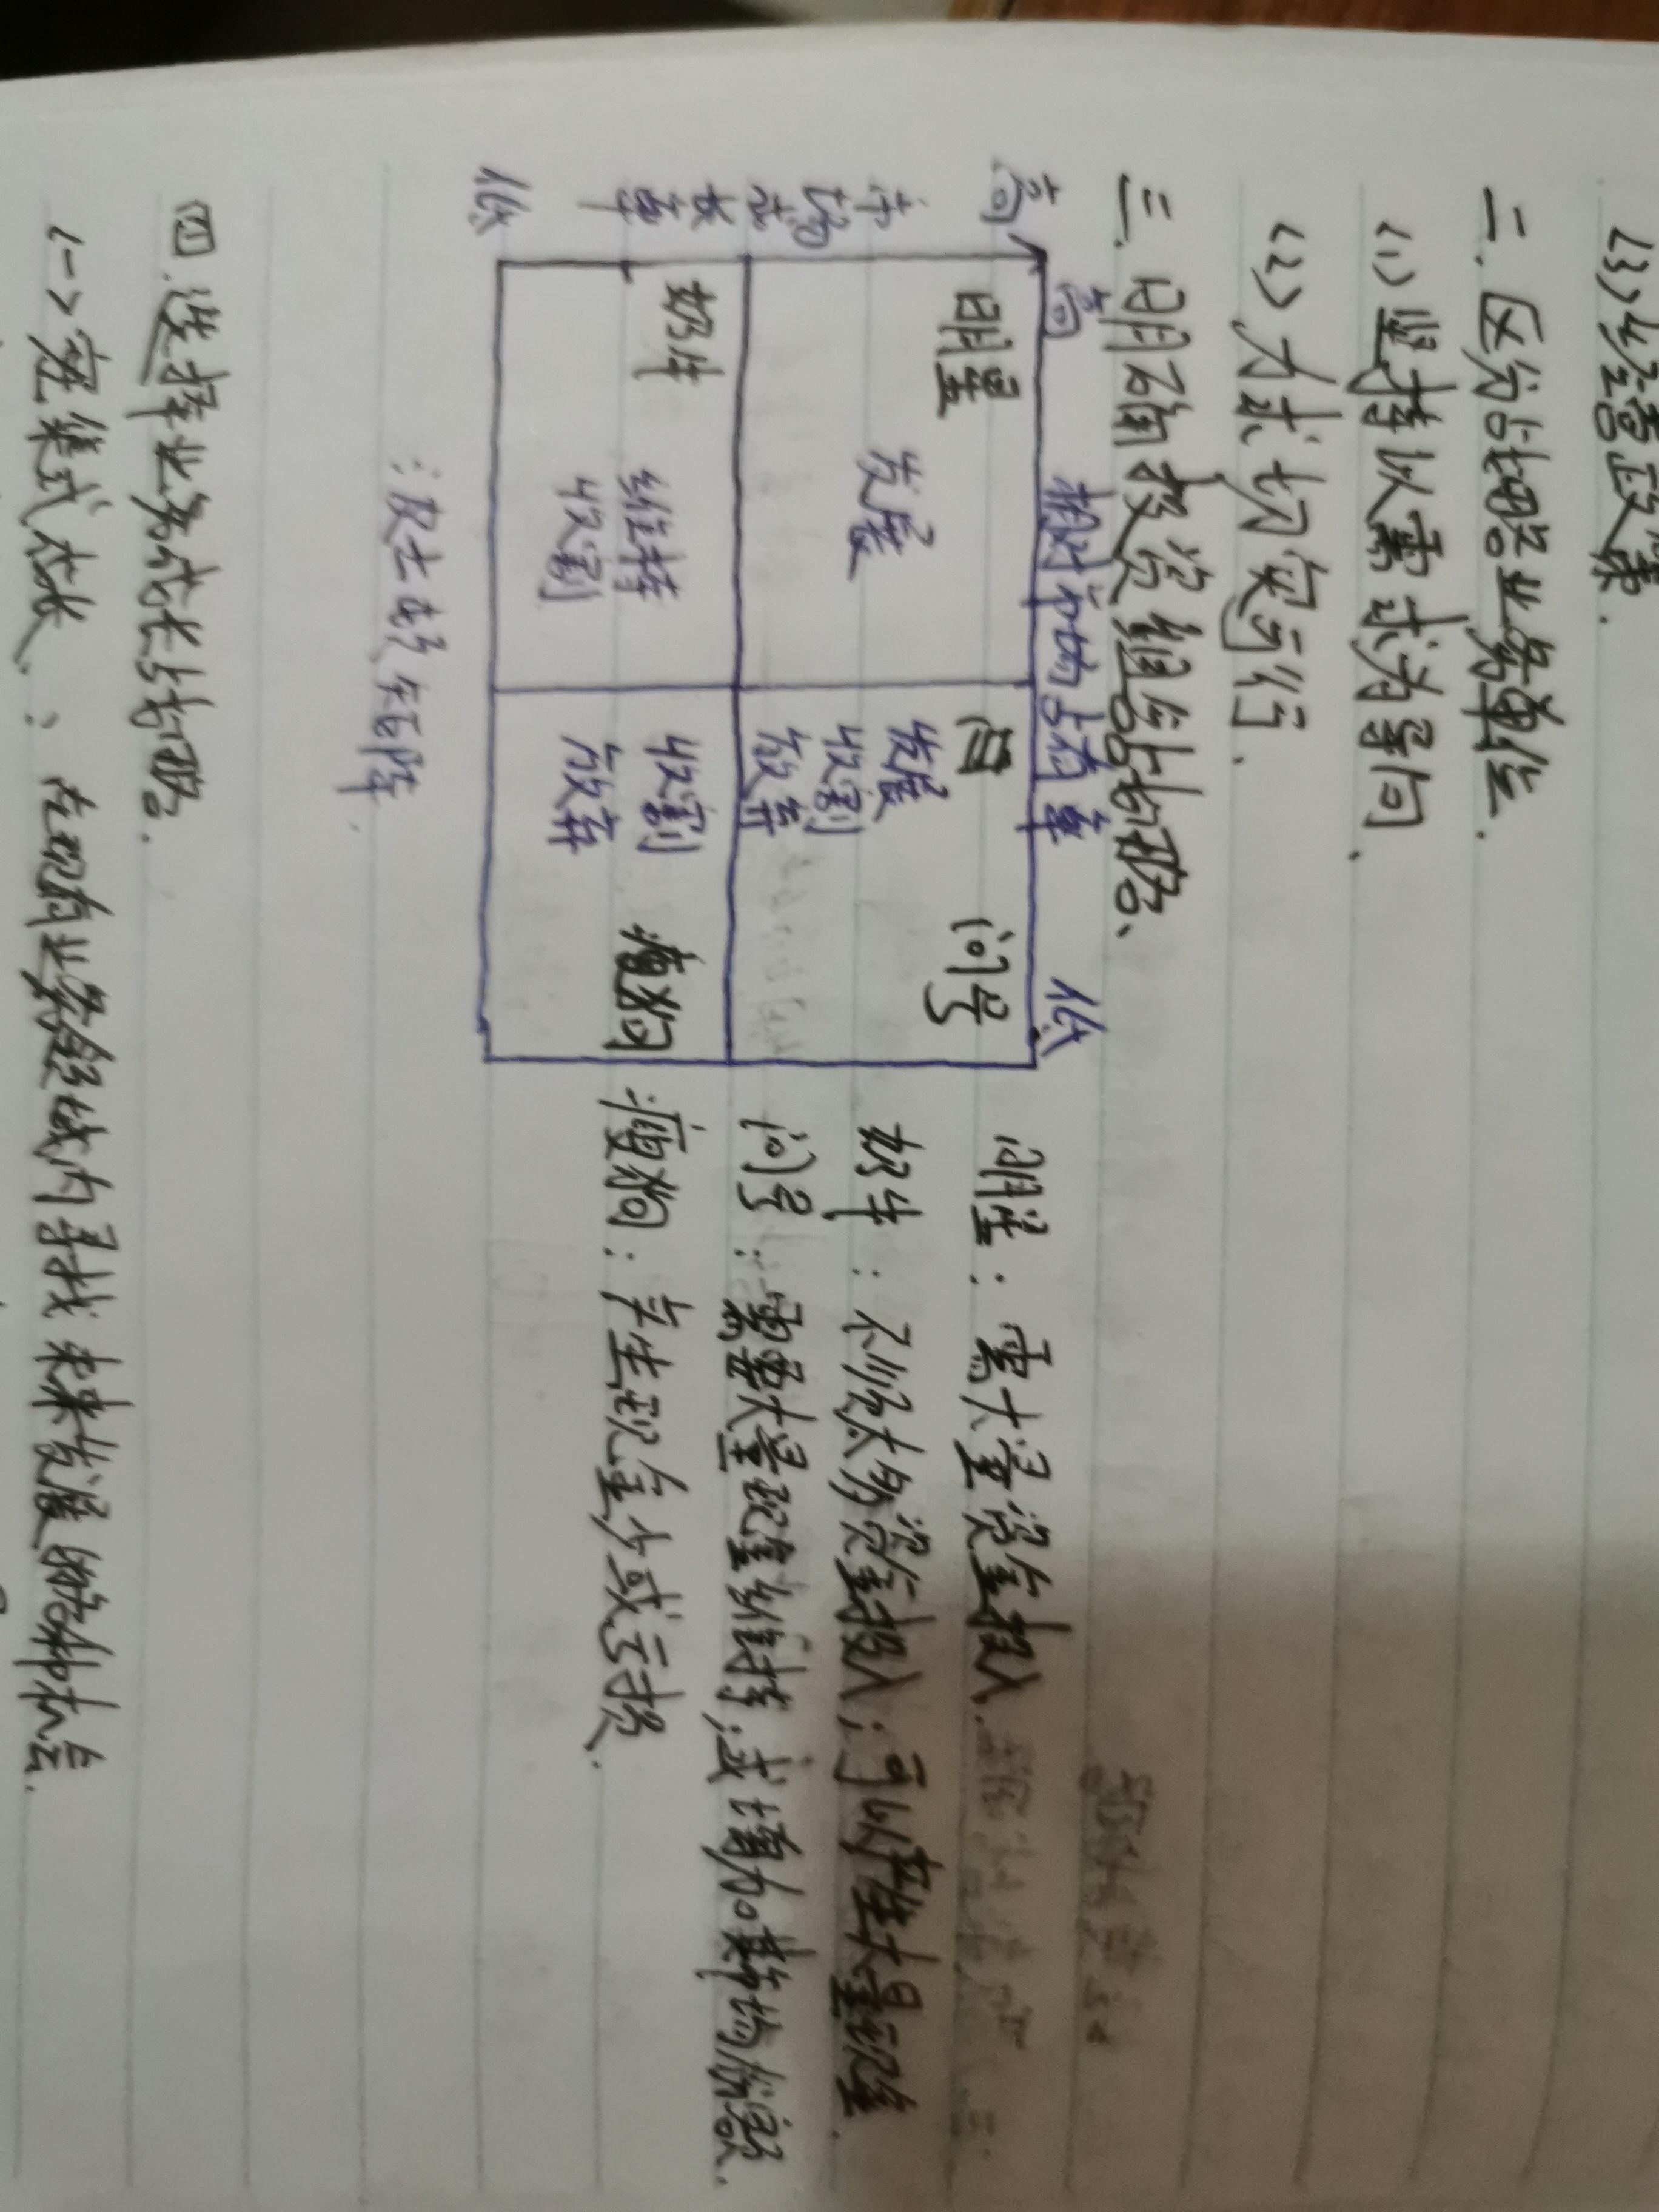 (3)经营政策.
二.区分战略业务单位.
(1)坚持以需求为导向、
(2)力求切实可行.
三.明确投资组合战略、
高 相对市场占有率 低
高 市场成长率 低
明星 发展
问号 发展 收割 放弃
奶牛 维持 收割
瘦狗 收割 放弃
明星：需大量资金投入.
奶牛：不必须太多资金投入；可以产生大量现金.
问号：需要大量现金维持；或增加其市场份额.
瘦狗：产生现金少或亏损.
：波士顿矩阵.
四.选择业务成长战略.
(一)密集式成长：在现有业务领域内寻找未来发展的各种机会.